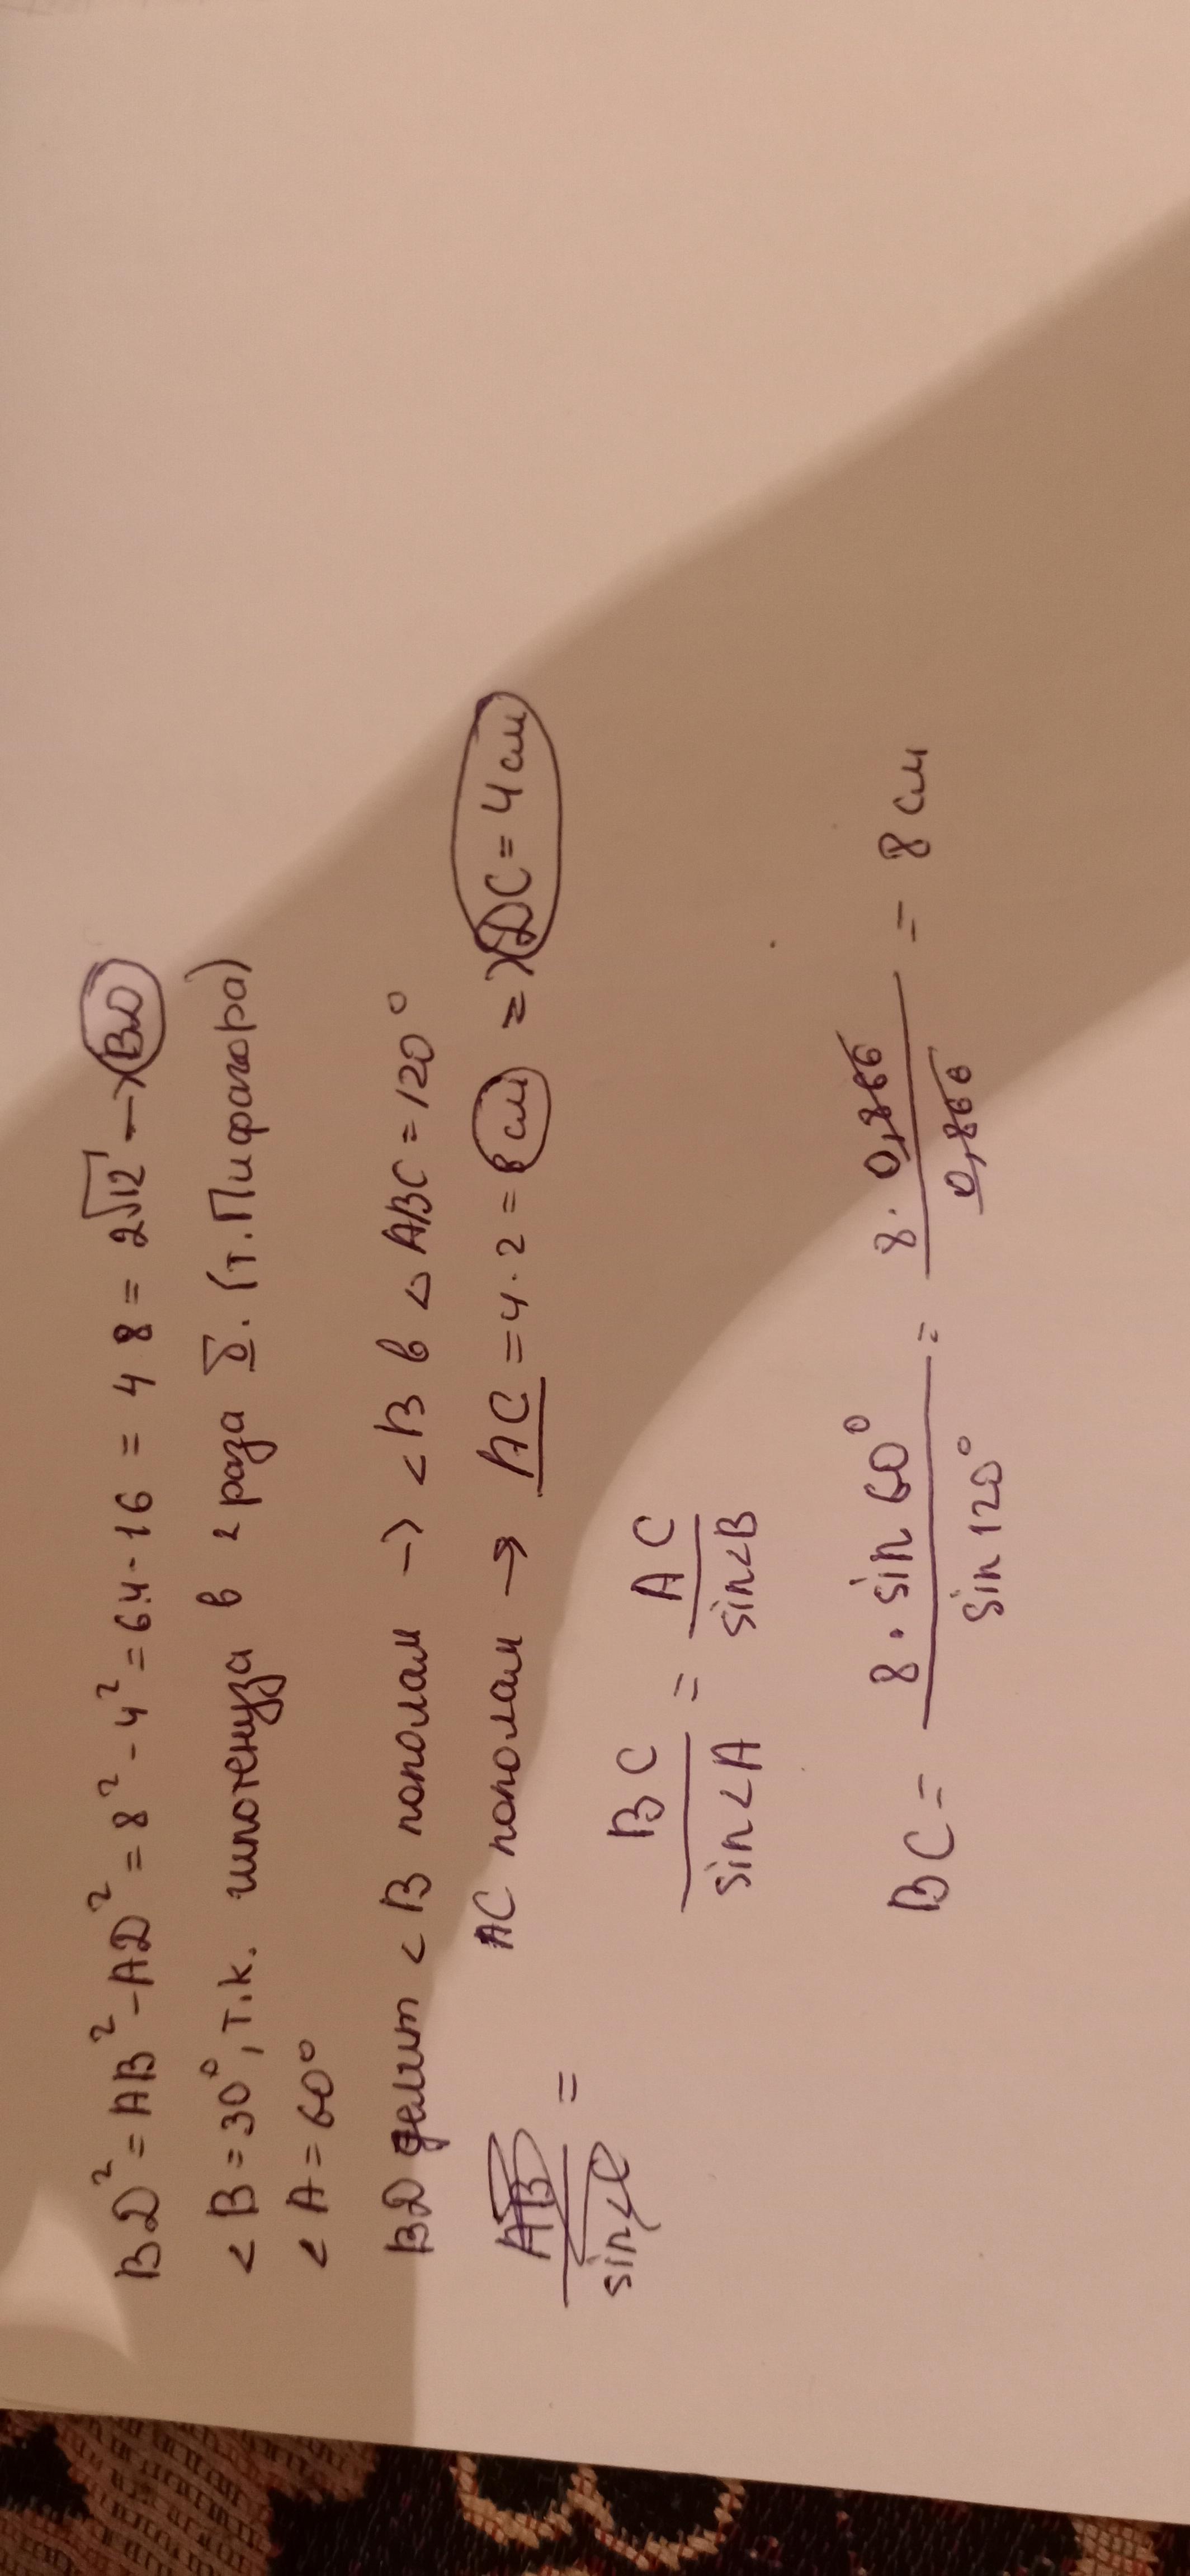 BD² = AB² - AD² = 8² - 4² = 64 - 16 = 48 = 2√12 → BD
<B = 30°, т.к. гипотенуза в 2 раза б. (т. Пифагора)
<A = 60°
BD делит <B пополам → <B в △ABC = 120°
AC пополам → AC = 4·2 = 8 см => DC = 4 см
AB / sin<C =
BC / sin<A = AC / sin<B
BC = 8·sin 60° / sin 120° = 8·0,866 / 0,866 = 8 см